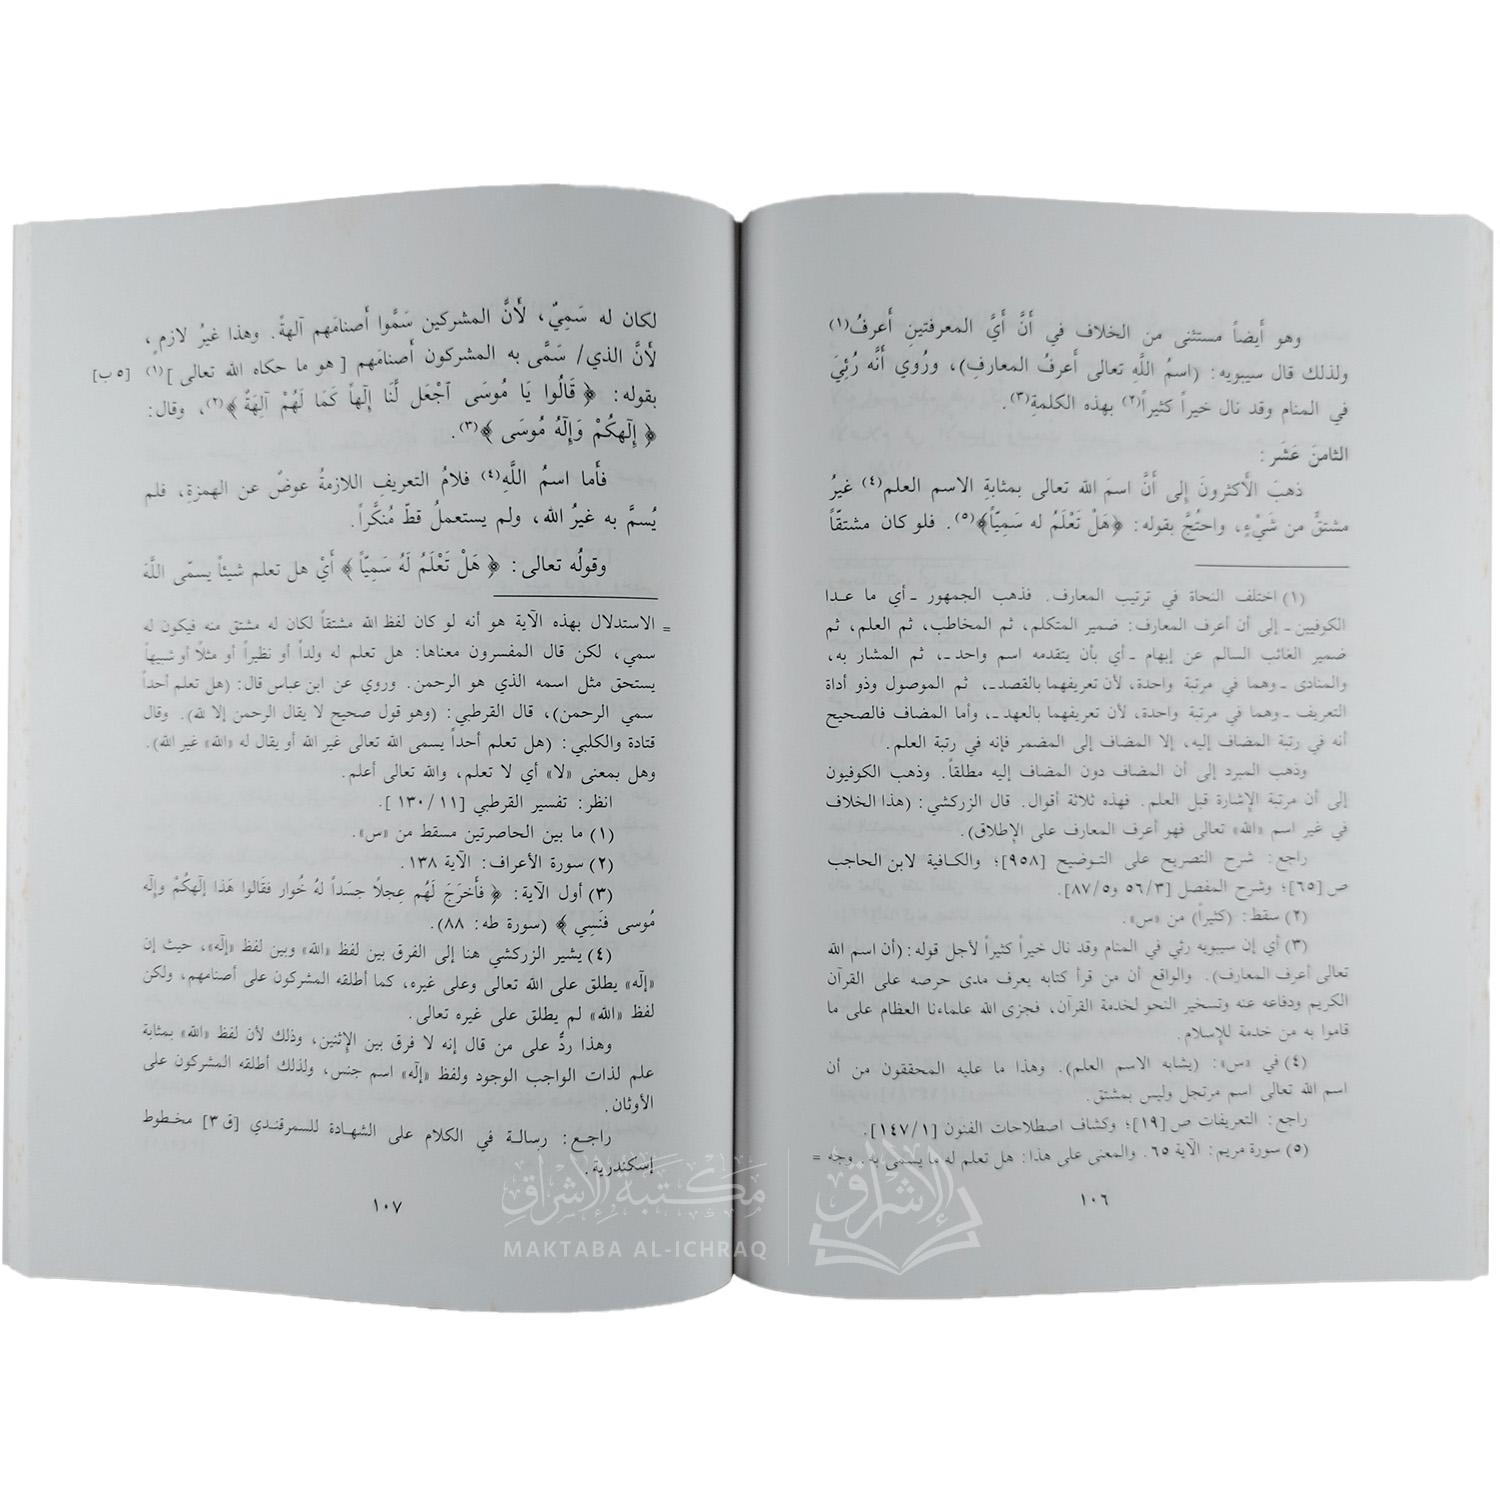 وهو أَيضاً مستثنى من الخلاف في أَنَّ أَيَّ المعرفتين أَعرفُ(١)
ولذلك قال سيبويه: (اسمُ اللَّهِ تعالى أَعرفُ المعارفِ)، ورُوي أَنَّه رُئِيَ
في المنام وقد نال خيراً كثيراً(٢) بهذه الكلمةِ(٣).
الثامنَ عَشَر:
ذهبَ الأَكثرونَ إِلى أَنَّ اسمَ الله تعالى بمثابةِ الاسم العلم(٤) غيرُ
مشتقٍّ من شَيْءٍ، واحتُجَّ بقوله: ﴿هَلْ تَعْلَمُ له سَمِيّاً﴾(٥). فلو كان مشتقّاً
(١) اختلف النحاة في ترتيب المعارف. فذهب الجمهور ـ أي ما عدا
الكوفيين ـ إلى أن أعرف المعارف: ضمير المتكلم، ثم المخاطب، ثم العلم، ثم
ضمير الغائب السالم عن إبهام ـ أي بأن يتقدمه اسم واحد ـ، ثم المشار به،
والمنادى ـ وهما في مرتبة واحدة، لأن تعريفهما بالقصد ـ، ثم الموصول وذو أداة
التعريف ـ وهما في مرتبة واحدة، لأن تعريفهما بالعهد ـ، وأما المضاف فالصحيح
أنه في رتبة المضاف إليه، إلا المضاف إلى المضمر فإنه في رتبة العلم.
وذهب المبرد إلى أن المضاف دون المضاف إليه مطلقاً. وذهب الكوفيون
إلى أن مرتبة الإشارة قبل العلم. فهذه ثلاثة أقوال. قال الزركشي: (هذا الخلاف
في غير اسم «الله» تعالى فهو أعرف المعارف على الإطلاق).
راجع: شرح التصريح على التوضيح [٩٥٨]؛ والكافية لابن الحاجب
ص [٦٥]؛ وشرح المفصل [٥٦/٣ و٨٧/٥].
(٢) سقط: (كثيراً) من «س».
(٣) أي إن سيبويه رئي في المنام وقد نال خيراً كثيراً لأجل قوله: (أن اسم الله
تعالى أعرف المعارف). والواقع أن من قرأ كتابه يعرف مدى حرصه على القرآن
الكريم ودفاعه عنه وتسخير النحو لخدمة القرآن، فجزى الله علماءنا العظام على ما
قاموا به من خدمة للإسلام.
(٤) في «س»: (يشابه الاسم العلم). وهذا ما عليه المحققون من أن
اسم الله تعالى اسم مرتجل وليس بمشتق.
راجع: التعريفات ص [١٩]؛ وكشاف اصطلاحات الفنون [١٤٧/١].
(٥) سورة مريم: الآية ٦٥. والمعنى على هذا: هل تعلم له ما يسمى به. وجه =
١٠٦
لكان له سَمِيٌ، لأَنَّ المشركين سَمَّوا أَصنامَهم آلهةً. وهذا غيرُ لازمٍ،
لأَنَّ الذي/ سَمَّى به المشركون أَصنامَهم [هو ما حكاه الله تعالى](١) [٥ ب]
بقوله: ﴿قَالُوا يَا مُوسَى ٱجْعَل لَّنَا إِلَهاً كَمَا لَهُمْ آلِهَةٌ﴾(٢)، وقال:
﴿إِلَهكُمْ وَإِلَهُ مُوسَى﴾(٣).
فأَما اسمُ اللَّهِ(٤) فلامُ التعريفِ اللازمةُ عوضٌ عن الهمزةِ، فلم
يُسمَّ به غيرُ الله، ولم يستعملُ قطّ مُنكَّراً.
وقولُه تعالى: ﴿هَلْ تَعْلَمُ لَهُ سَمِيّاً﴾ أَيْ هل تعلم شيئاً يسمّى اللَّهَ
= الاستدلال بهذه الآية هو أنه لو كان لفظ الله مشتقاً لكان له مشتق منه فيكون له
سمي، لكن قال المفسرون معناها: هل تعلم له ولداً أو نظيراً أو مثلاً أو شبيهاً
يستحق مثل اسمه الذي هو الرحمن. وروي عن ابن عباس قال: (هل تعلم أحداً
سمي الرحمن)، قال القرطبي: (وهو قول صحيح لا يقال الرحمن إلا لله). وقال
قتادة والكلبي: (هل تعلم أحداً يسمى الله تعالى غير الله أو يقال له «الله» غير الله).
وهل بمعنى «لا» أي لا تعلم، والله تعالى أعلم.
انظر: تفسير القرطبي [١٣٠/١١].
(١) ما بين الحاصرتين مسقط من «س».
(٢) سورة الأعراف: الآية ١٣٨.
(٣) أول الآية: ﴿فَأخرَجَ لَهُم عِجلاً جسَداً لهُ خُوار فقَالوا هَذا إلَهكُمْ وإلَه
مُوسى فنَسِي﴾ (سورة طه: ٨٨).
(٤) يشير الزركشي هنا إلى الفرق بين لفظ «الله» وبين لفظ «إلَه»، حيث إن
«إلَه» يطلق على الله تعالى وعلى غيره، كما أطلقه المشركون على أصنامهم، ولكن
لفظ «الله» لم يطلق على غيره تعالى.
وهذا ردٌّ على من قال إنه لا فرق بين الإثنين، وذلك لأن لفظ «الله» بمثابة
علم لذات الواجب الوجود ولفظ «إلَه» اسم جنس، ولذلك أطلقه المشركون على
الأوثان.
راجع: رسالة في الكلام على الشهادة للسمرقندي [ق ٣] مخطوط
إسكندرية.
١٠٧
مكتبة الإشراق
MAKTABA AL-ICHRAQ
الإشراق